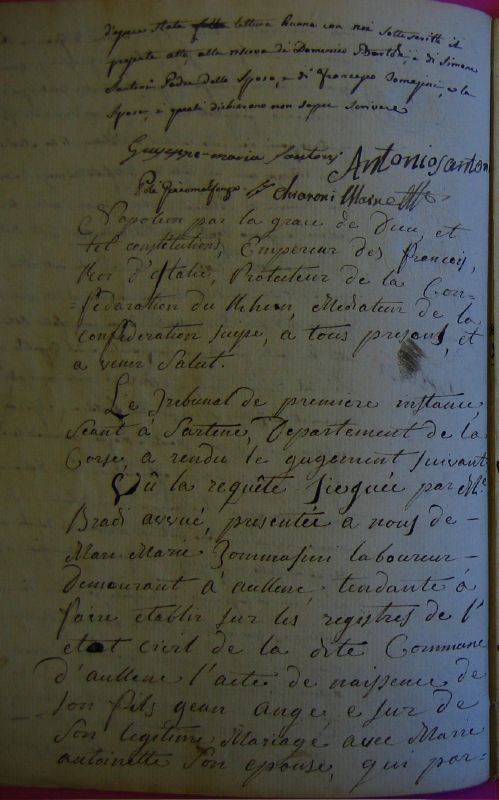 d'essere stata lettura hanno con noi sottoscritti il
presente atto, alla riserva di Domenico di Simone
Santoni Padre dello Sposo, e di Francesco Tomasini, e la
Sposa, i quali dichiarono non saper scrivere
Giuseppe-maria Santoni Antonio Santon
Chiaroni Maire
Napoleon par la grace de Dieu, et
les constitutions, Empereur des françois,
Roi d'Italie, Protecteur de la Con-
=fédaration du Rhein, Mediateur de la
confederation suisse, a tous presens, et
a venir Salut.
Le Tribunal de premiere instance,
Seant à Sartene, Departement de la
Corse, a rendu le gugement suivant
Vû la requête siegnée par Me
Bradi avvué, presentée a nous de-
Marc Marie Tommasini laboureur-
demeurant à aullene, tendante à
faire etablir sur les registres de l'
etat civil de la dite Commune
d'aullene l'acte de naissence de
son fils gean ange e sur de
son legitime Mariage avec Marie
antoinette son epouse, qui par-